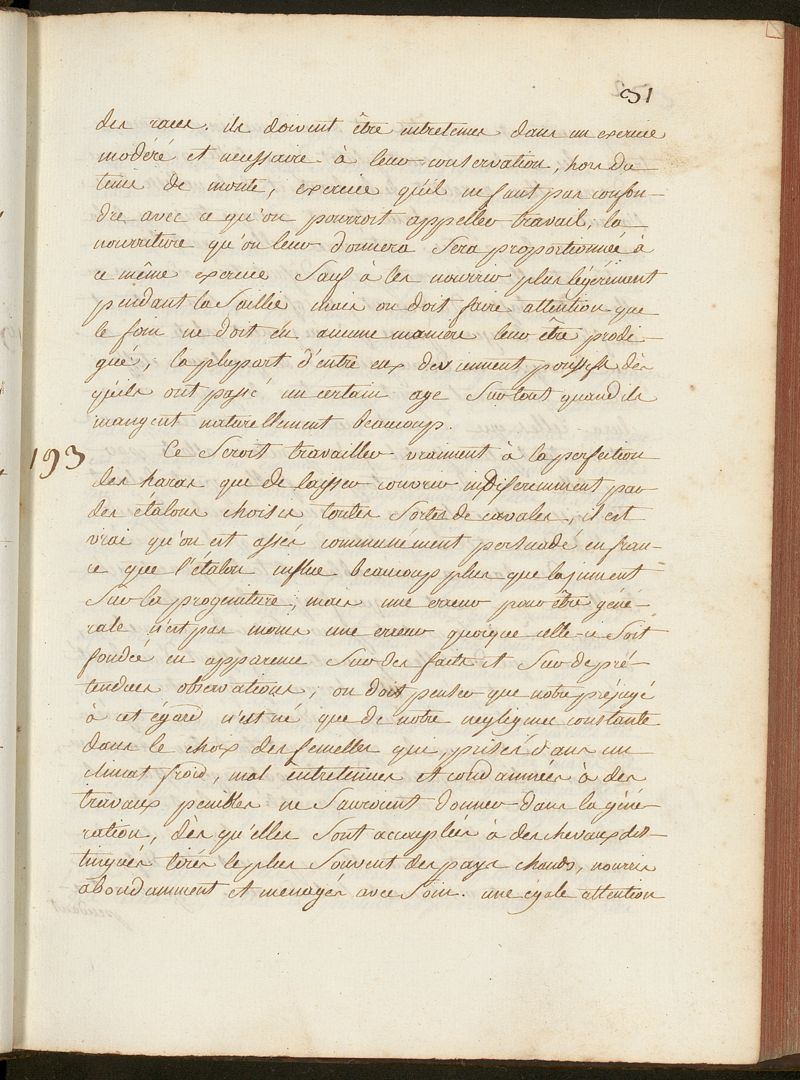 51
des races. ils doivent être entretenus dans un exercice
modéré et necessaire à leur conservation, hors du
tems de monte, exercice qu'il ne faut pas confon-
dre avec ce qu'on pourroit appeller travail; la
nourriture qu'on leur donnera sera proportionnée à
ce même exercice sauf à les nourrir plus légérement
pendant la Saillie mais on doit faire attention que
le foin ne doit en aucune maniere leur être prodi-
gué, la plupart d'entre eux deviennent poussifs dès
qu'ils ont passé un certain age surtout quand ils
mangent naturellement beaucoup.
193 Ce Seroit travailler vraiment à la perfection
des haras que de laisser couvrir indiferemment par
des étalons choisis toutes Sortes de cavales, il est
vrai qu'on est assés communément persuadé en fran-
ce que l'étalon influe beaucoup plus que la jument
sur la progeniture, mais une erreur pour être géné-
rale n'est pas moins une erreur quoique elle-ci soit
fondée en apparence sur des faits et sur de pré-
tendues observations; on doit penser que notre préjugé
à cet égard n'est né que de notre negligence constante
dans le choix des femelles qui, prises dans un
climat froid, mal entretenues et condamnées à des
travaux penibles ne Sauroient donner dans la géné-
ration, dès qu'elles sont accouplées à des chevaux dis-
tingués tirés le plus Souvent des pays chauds, nourris
abondamment et menagés avec Soin. une egale attention